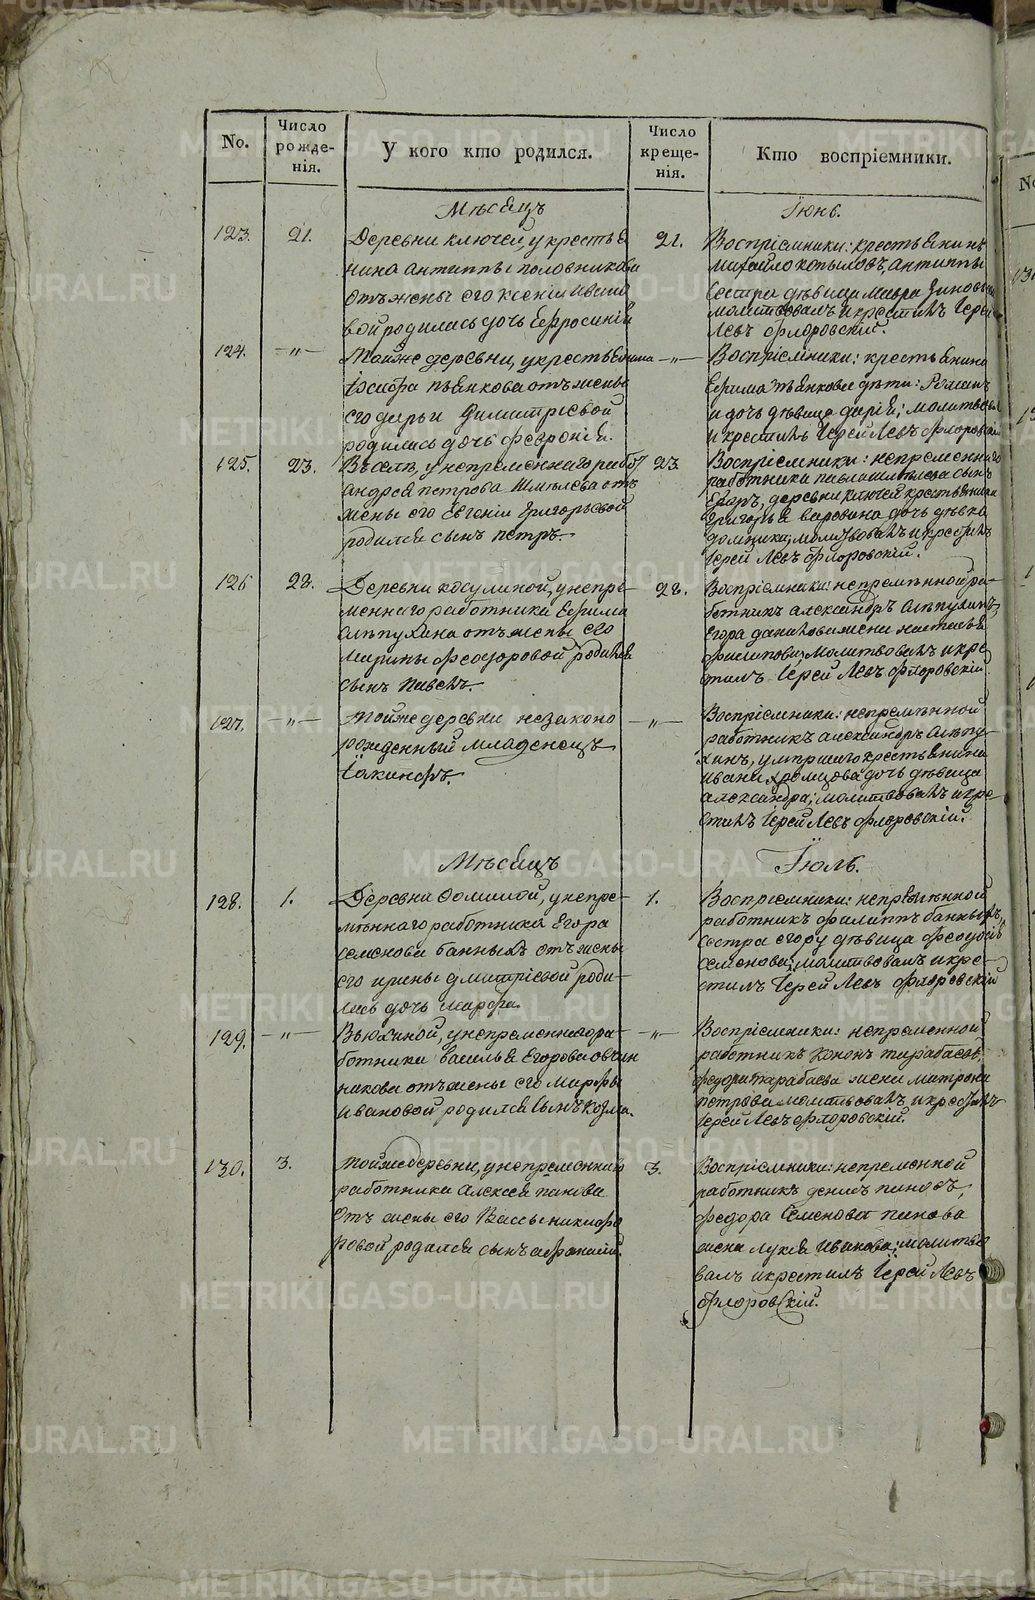 No.
Число
рожде-
нія.
У кого кто родился.
Число
креще-
нія.
Кто воспріемники.
Мѣсяцъ
Іюнь.
123.
21.
Деревни ключей, у крестья
нина антиппы половникова
отъ жены его ксеніи ивано
вой родилась дочь Ефросинія
21.
Воспріемники: крестьянинъ
михайло копыловъ, антиппы
сестра дѣвица мавра
молитвовалъ и крестилъ Іерей
Левъ флоровскій.
124.
—"—
Тойже деревни, у крестьянина
пьянкова отъ жены
его дарьи димитріевой
родилась дочь феѵронія.
—"—
Воспріемники: крестьянина
Ефима пьянкова дѣти: Романъ
и дочь дѣвица дарія; молитвовалъ
и крестилъ Іерей Левъ флоровскій
125.
23.
Въ селѣ, у непременнаго рабо
андрея петрова Шмелева отъ
жены его Евгеніи Григорьевой
родился сынъ петръ.
23.
Воспріемники: непременнаго
работника павла шмелева сынъ
Егоръ, деревни ключей крестьянина
Григорья варовина дочь дѣвка
домника; молитвовалъ и крестилъ
Іерей Левъ флоровскій.
126
28.
Деревни косулиной, у непре-
меннаго работника Ефима
алѣпухина отъ жены его
марины феодоровой родился
сынъ павелъ.
28.
Воспріемники: непремѣнной ра-
ботникъ александръ алѣпухинъ,
Егора данилова жена настасья
филипова; молитвовалъ и кре-
стилъ Іерей Левъ флоровскій
127.
—"—
тойже деревни незаконо
рожденный младенецъ
Іакинфъ.
—"—
Воспріемники: непремѣнной
работникъ александръ алѣпу-
хинъ, умершаго крестьянина
ивана хромцова дочь дѣвица
александра; молитвовалъ и кре-
стилъ Іерей Левъ флоровскій.
Мѣсяцъ
Іюль.
128.
1.
Деревни фоминой, у непре-
мѣннаго работника Егора
семенова банныхъ отъ жены
его ирины дмитріевой роди-
лась дочь марфа.
1.
Воспріемники: непремѣнной
работникъ филиппъ банныхъ,
сестра егору дѣвица феодосья
семенова; молитвовалъ и кре-
стилъ Іерей Левъ флоровскій
129.
—"—
Вьюхиной, у непременнаго ра-
ботника василья Егорова овчин
никова отъ жены его марфы
ивановой родился сынъ козма.
—"—
Воспріемники: непременной
работникъ кононъ тарабаевъ,
федора тарабаева жена матрона
петрова молитвовалъ и крестилъ
Іерей Левъ флоровскій.
130.
3.
тойже деревни, у непременнаго
работника алексея панова
отъ жены его Вассы никифо
ровой родился сынъ афанасій.
3.
Воспріемники: непременной
работникъ денисъ пановъ,
федора Семенова панова
жена лукія иванова; молитво
валъ и крестилъ Іерей Левъ
флоровскій.
METRIKI.GASO-URAL.RU